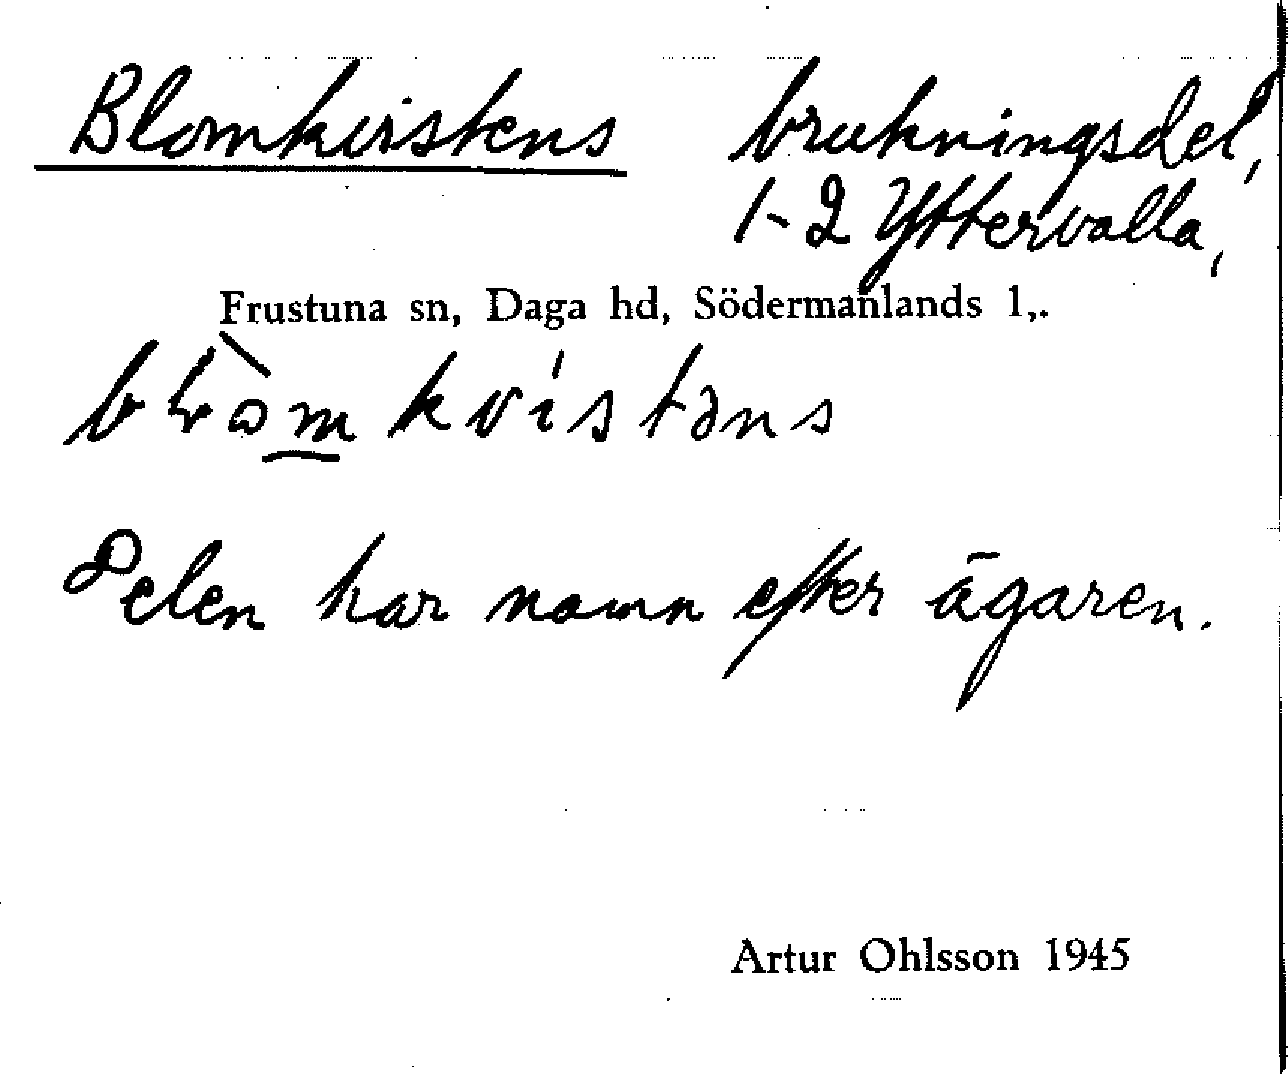 Blomkvistens brukningsdel,
1-2 Yttervalla,
Frustuna sn, Daga hd, Södermanlands l,.
blòmkvístəns
Delen har namn efter ägaren.
Artur Ohlsson 1945